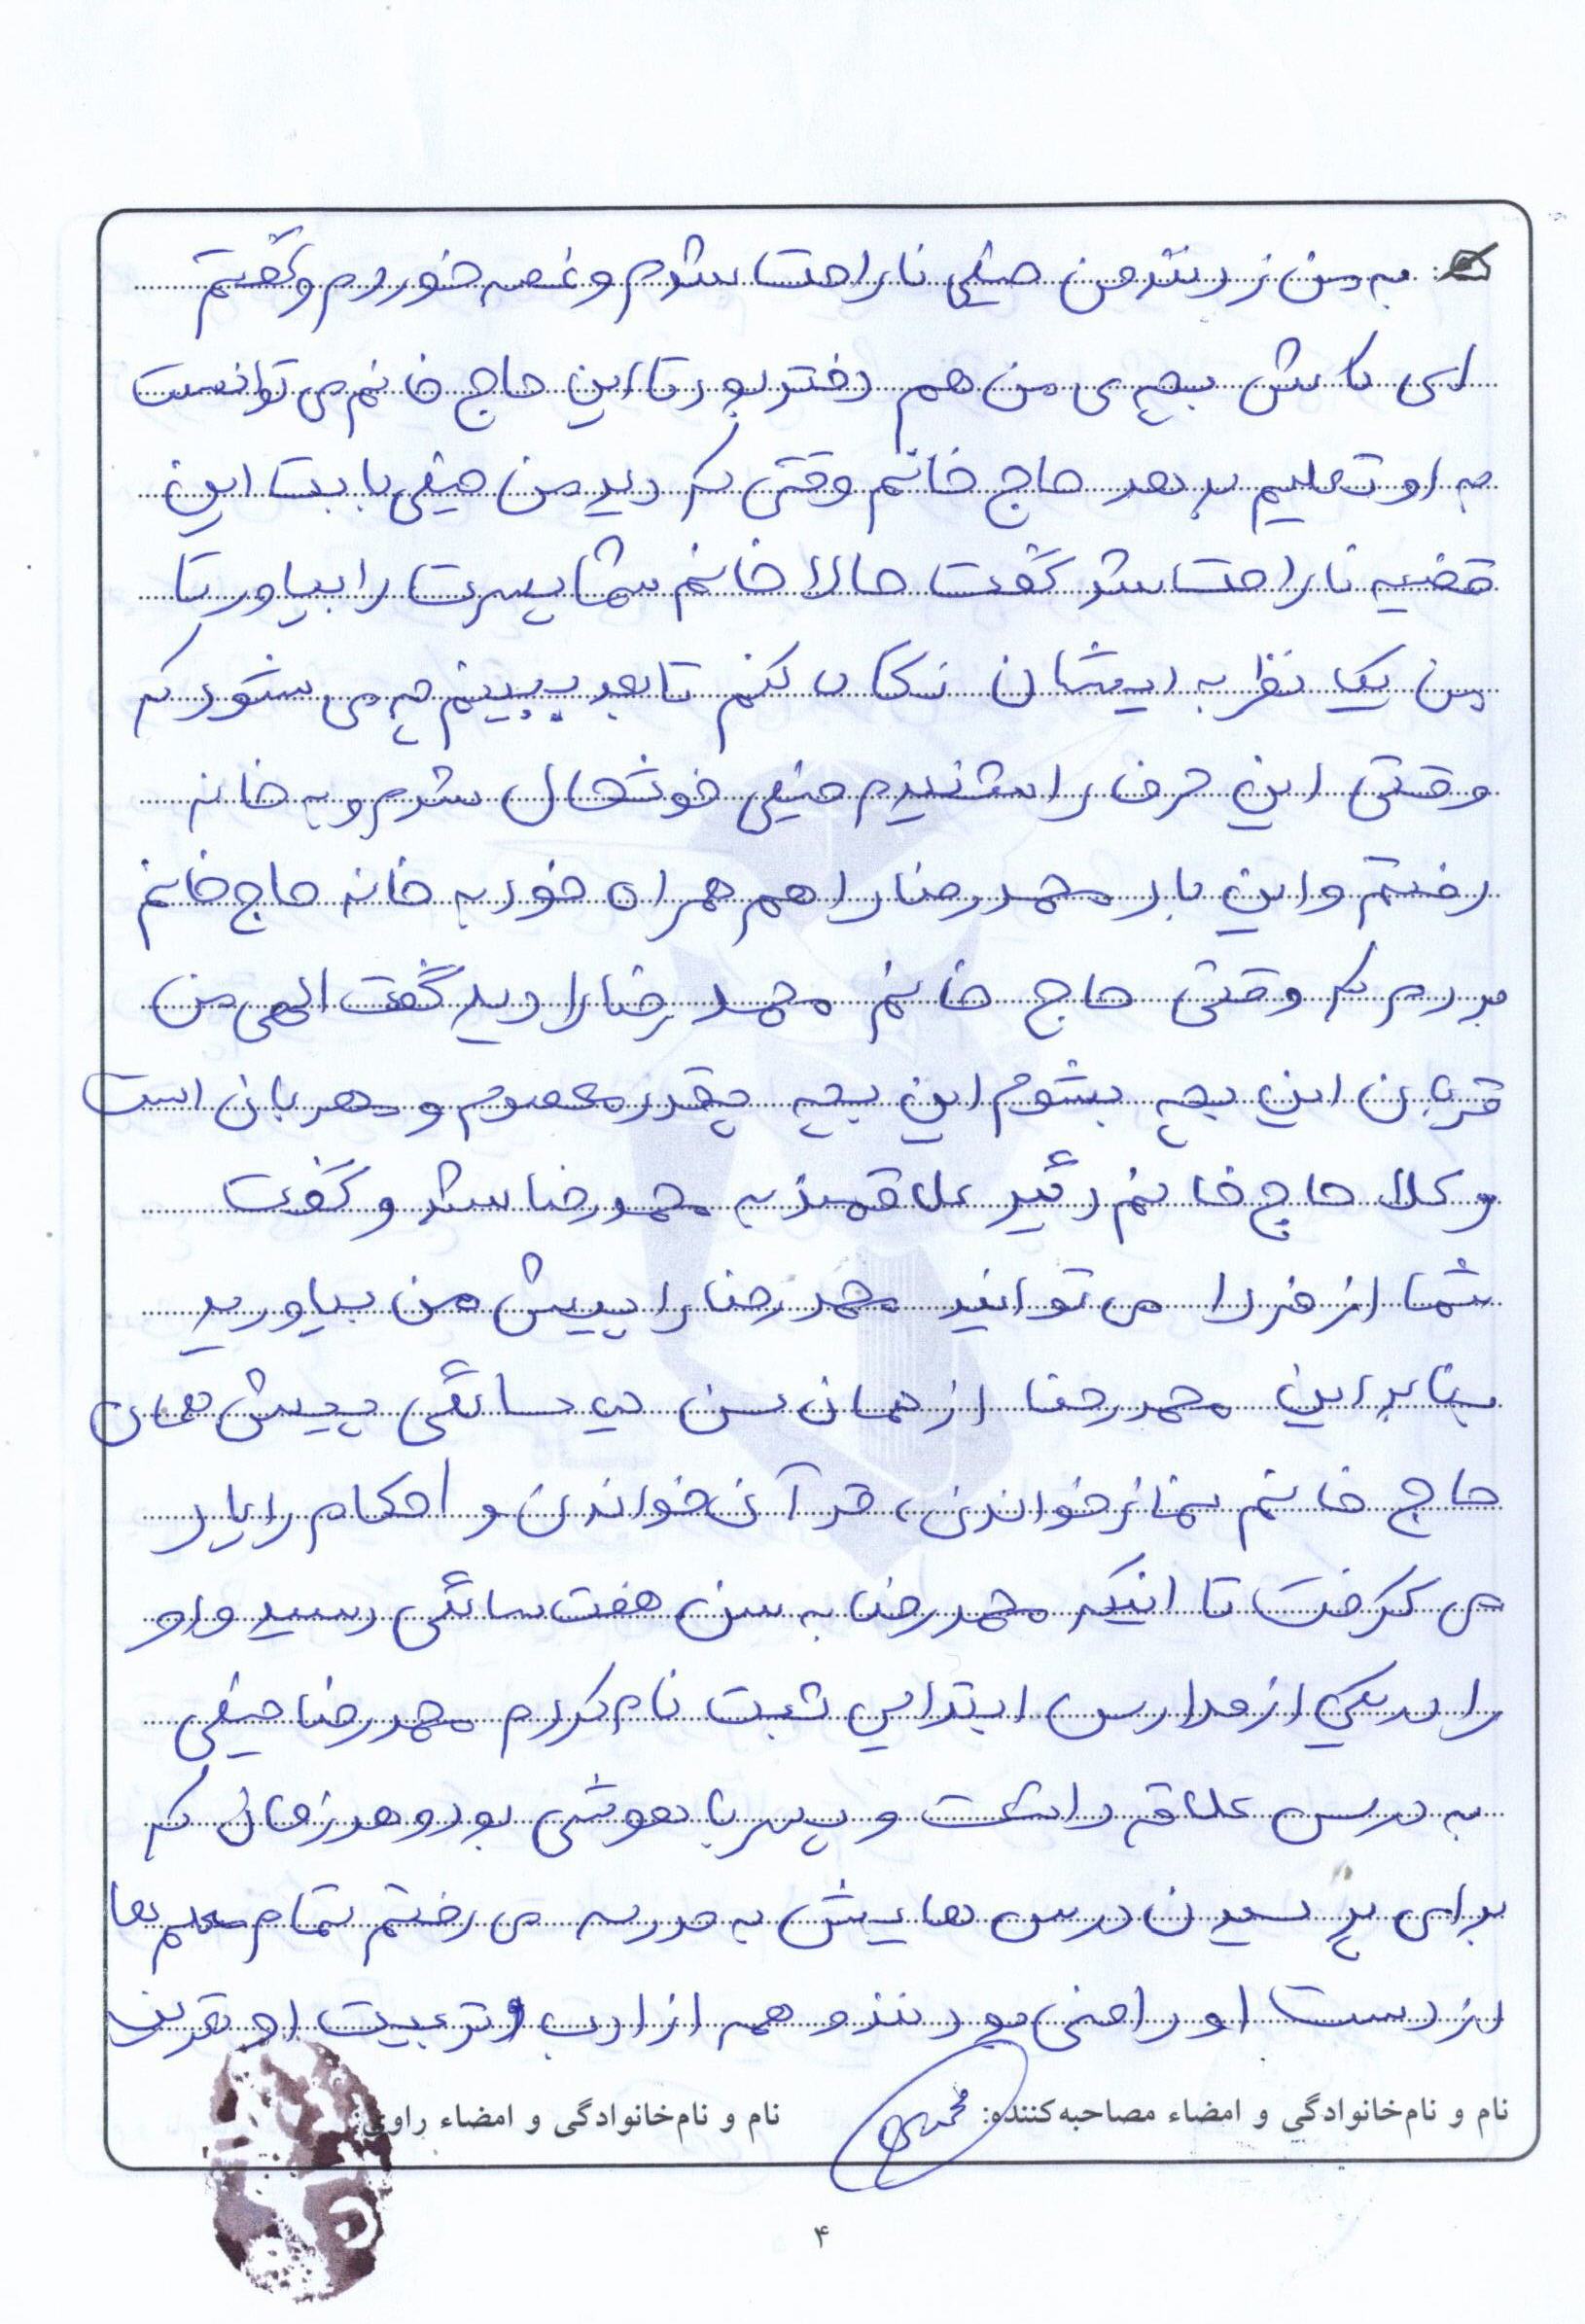 به من زدند من خیلی ناراحت شدم و غصه خوردم و گفتم
ای کاش بچه ی من هم دختر بود تا این حاج خانم می توانست
به او تعلیم بدهد حاج خانم وقتی که دید من خیلی بابت این
قضیه ناراحت شد گفت حالا خانم شما پسرت را بیاور تا
من یک نظر به ایشان نگاه کنم تا بعد ببینم چه می شود که
وقتی این حرف را شنیدم خیلی خوشحال شدم و به خانه
رفتم و این بار محمدرضا را هم همراه خود به خانه حاج خانم
بردم که وقتی حاج خانم محمدرضا را دید گفت الهی من
قربان این بچه بشوم این بچه چقدر معصوم و مهربان است
و کلا حاج خانم دگیر علاقمند به محمدرضا شد و گفت
شما از فردا می توانید محمدرضا را پیش من بیاورید
بنابراین محمدرضا از همان سن سالگی پیش همان
حاج خانم نماز خواندن، قرآن خواندن و احکام را یاد
می گرفت تا اینکه محمدرضا به سن هفت سالگی رسید و او
را در یکی از مدارس ابتدایی ثبت نام کردم محمدرضا خیلی
به درس علاقه داشت و پسر با هوشی بود و هر زمان که
برای پرسیدن درس هایش به مدرسه می رفتم تمام معلم ها
از دست او راضی بودند و همه از ادب و تربیت او تعریف
نام و نام‌خانوادگی و امضاء مصاحبه‌کننده: محمدی
نام و نام‌خانوادگی و امضاء راوی:
۴